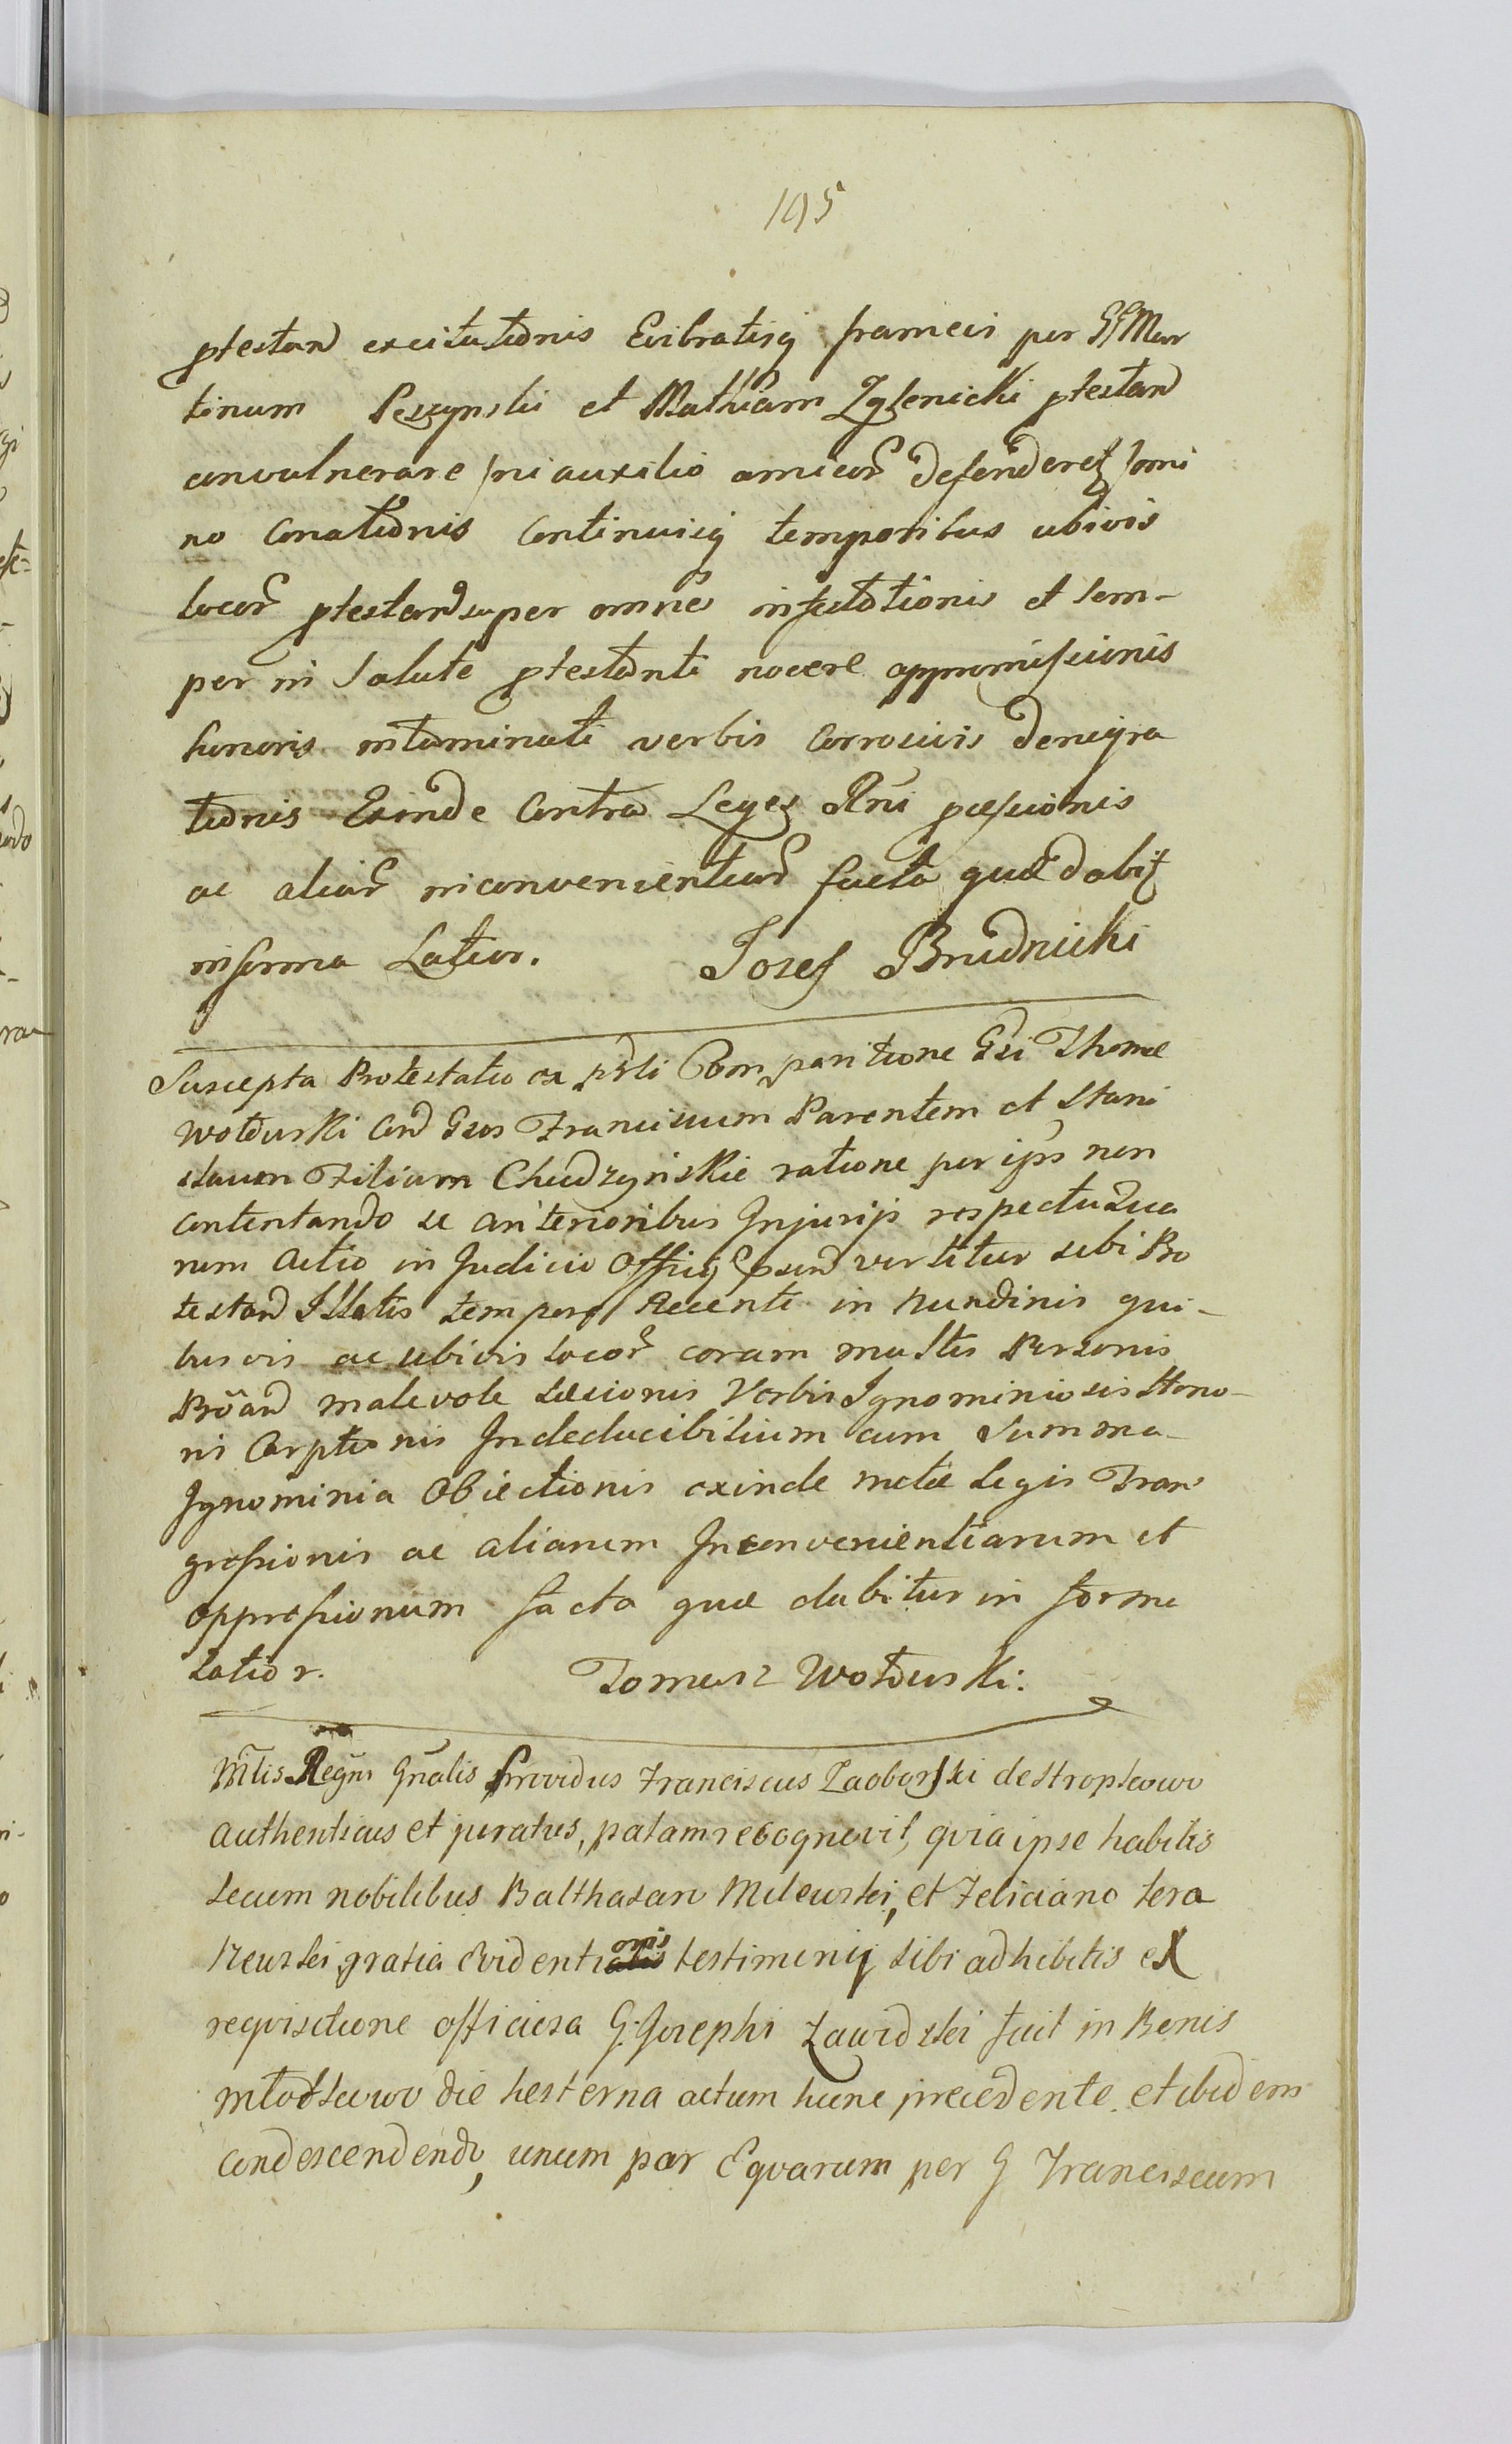 195
ptestand excitationis Evibratisq frameis per GG Mar
tinum Peszynski et Mathiam Zglenicki ptestand
convulnerare /ni auxilio amicor defenderet/ omi
no Conationis Continuisq temporibus ubivis
locor ptestand super omnes infestationis et sem-
per in salute ptestanti nocere appromissionis
honoris intaminati verbis Corrosivis denigra
tionis Exinde Contra Leges Rni pcessionis
ac aliar inconvenientiar facta quæ dabit
in forma Latior. Josef Brudnicki
Suscepta Protestatio ex psti Comparitione Gsi Thomæ
Wołduski Cond Gsos Franciscum Parentem et Stani
slaum Filium Chudzynskie ratione per ipsos non
contentando se anterioribus Injurijs respectu Qua
rum Actio in Judicio Officij psend vertitur sibi Pro
testand Illatis tempore Recenti in Nundinis qui-
busvis ac ubivis locor coram multis Personis
Proand malevole Læsionis Verbis Ignominiosis Hono-
ris Carptionis Indeducibilium cum Summa
Ignominia Obiectionis exinde metæ Legis Trans
gressionis ac aliarum Inconvenientiarum et
oppressionum facta quæ dabitur in forma
Latior. Tomasz Wołduski:
Mtlis Regni Gnalis Providus Franciscus Zaoborski de Stropkowo
authenticus et juratus, palam recognovit, quia ipse habitis
secum nobilibus Balthasaro Milewski, et Feliciano Tera
Kewski gratia Evidentioris testimonij sibi adhibitis ex
requisitione officiosa G. Josephi Zawidzki fuit in Bonis
Młodkowo die hesterna actum hunc precedente et ibidem
condescendendo, unum par Equarum per G Franciscum